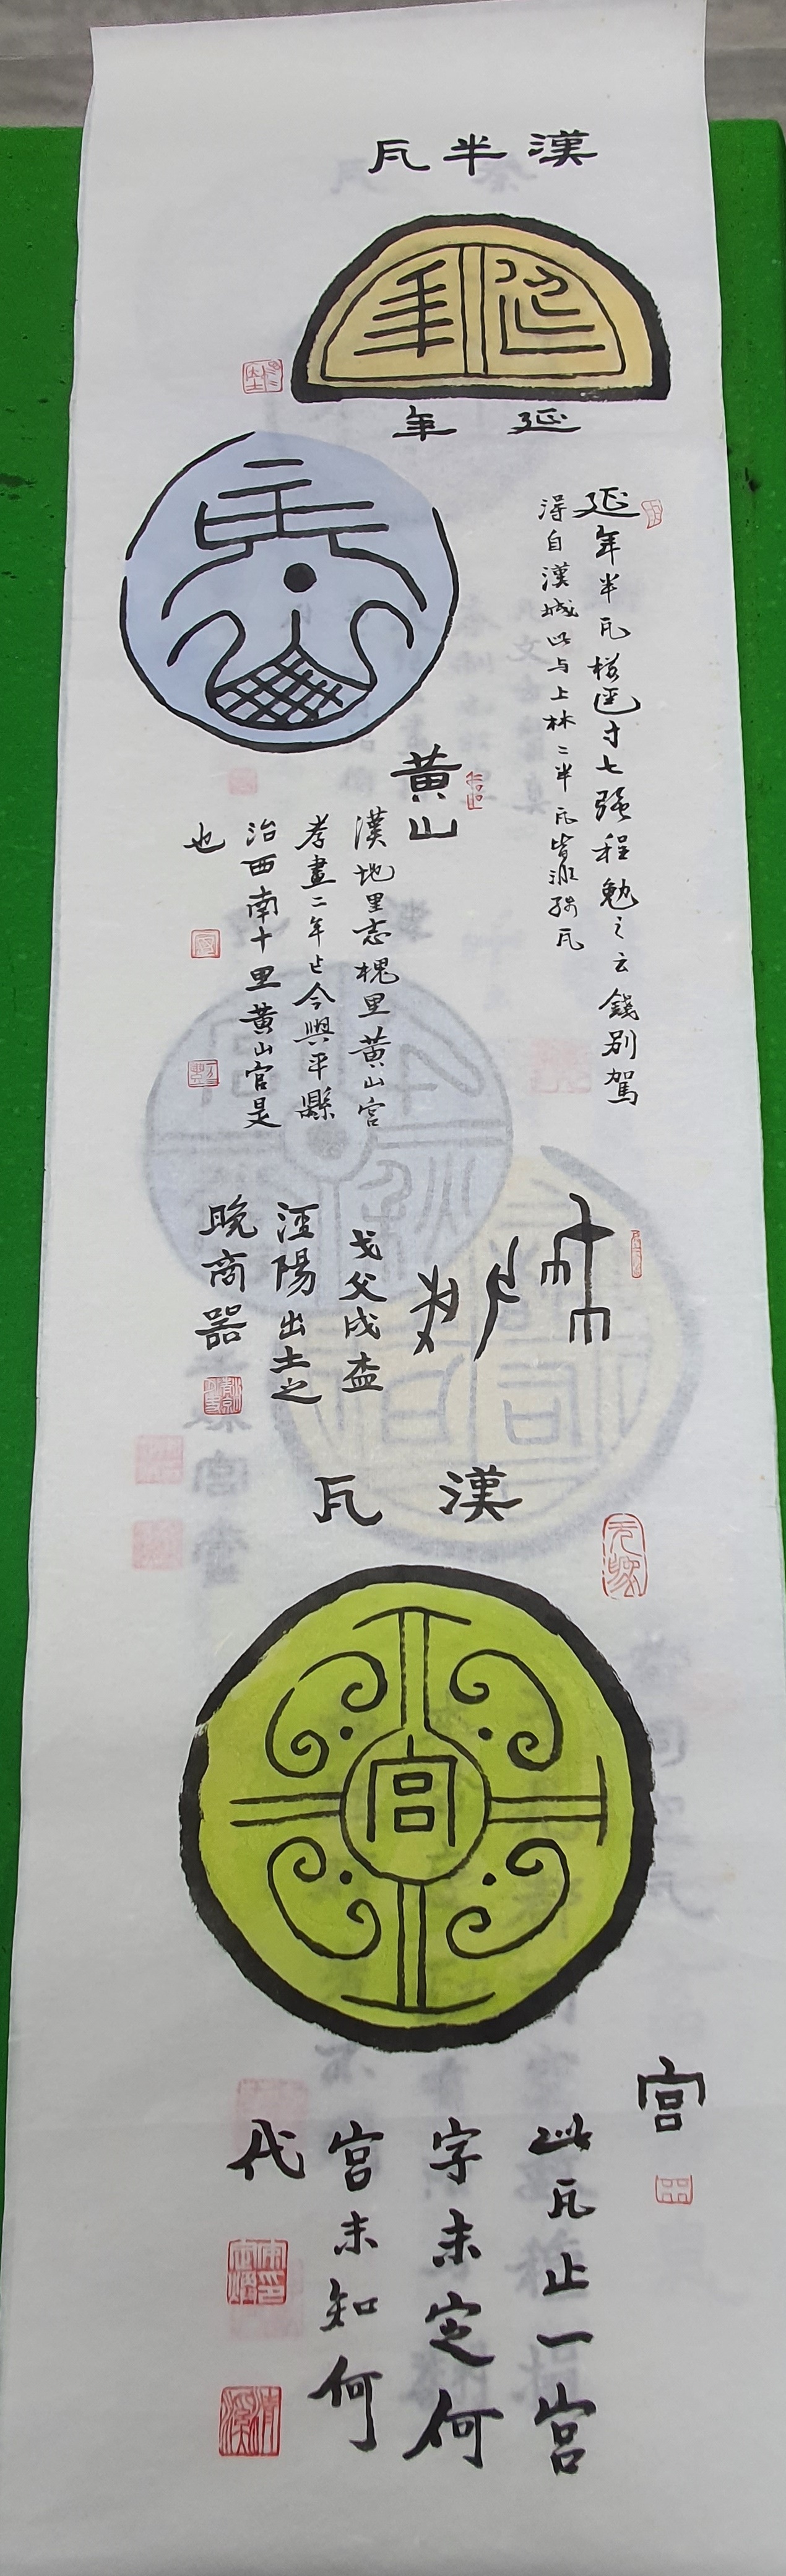 漢半瓦
延年
延年
延年半瓦樣逕寸七強程勉之云錢别駕
得自漢城以与上林二半瓦皆
黄山
漢地里志槐里黄山宫
孝惠二年
今興平縣
治西南十里黄山宫是
也
戈父戊盉
涇陽出土之
晚商器
漢瓦
宫
宫
此瓦止一宫
字未定何
宫未知何
代